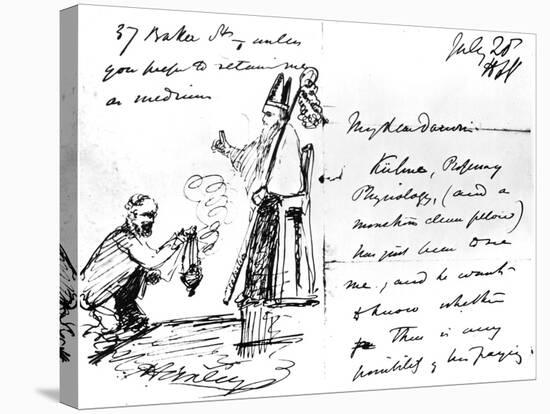 July 20
37 Baker St, unless
you prefer to retain me
as medium
My dear Darwin
Kühne, Prof of
Physiology, (and a
clever fellow)
has just been
me, and he wants
to know whether
there is any
possibility of his paying